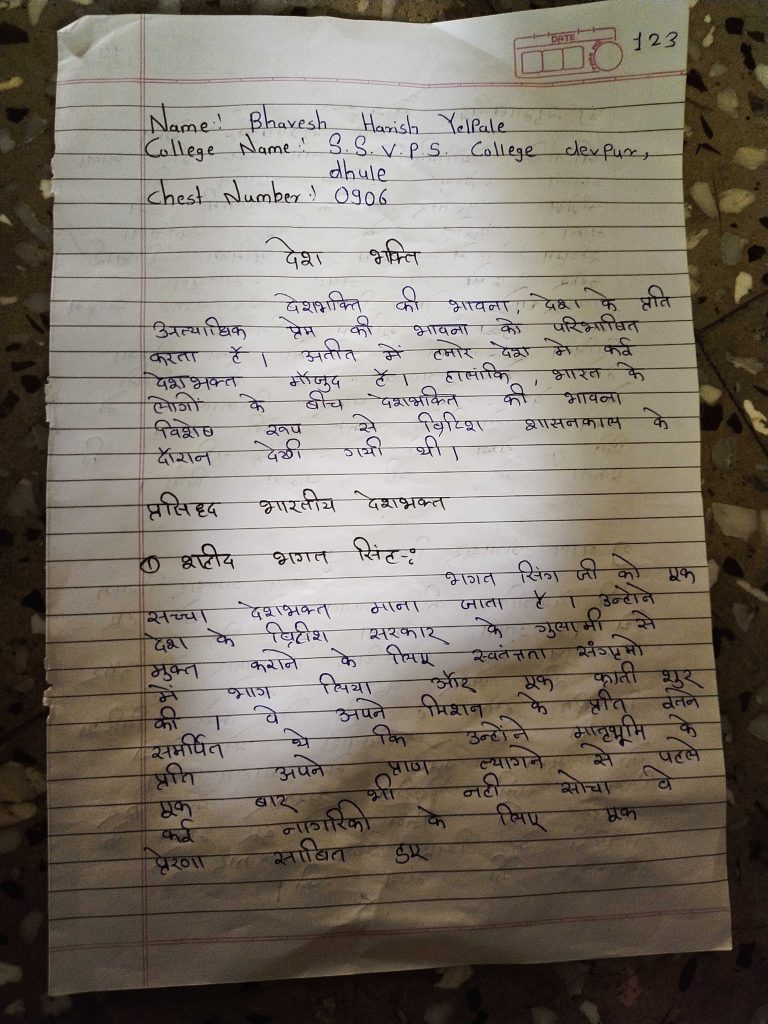 DATE
123
Name:- Bhavesh Harish Yelpale
College Name:- S.S.V.P.S. College devpur,
dhule
Chest Number:- 0906
देश भक्ति
देशभक्ति की भावना, देश के प्रति
अत्याधिक प्रेम की भावना को परिभाषित
करता है। अतीत में हमारे देश मे कई
देशभक्त मौजुद है। हालांकि, भारत के
लोगों के बीच देशभक्ति की भावना
विशेष रूप से ब्रिटिश शासनकाल के
दौरान देखी गयी थी।
प्रसिद्द भारतीय देशभक्त
① शहीद भगत सिंह-:
भगत सिंग जी को एक
सच्चा देशभक्त माना जाता है। उन्होने
देश के ब्रिटीश सरकार के गुलामी से
मुक्त कराने के लिए स्वतंत्रता संग्रामो
में भाग लिया और एक क्रांती शुरू
की। वे अपने मिशन के प्रति इतने
समर्पित थे कि उन्होंने मातृभूमि के
प्रति अपने प्राण त्यागने से पहले
एक बार भी नही सोचा वे
कई नागरिको के लिए एक
प्रेरणा साबित हुए